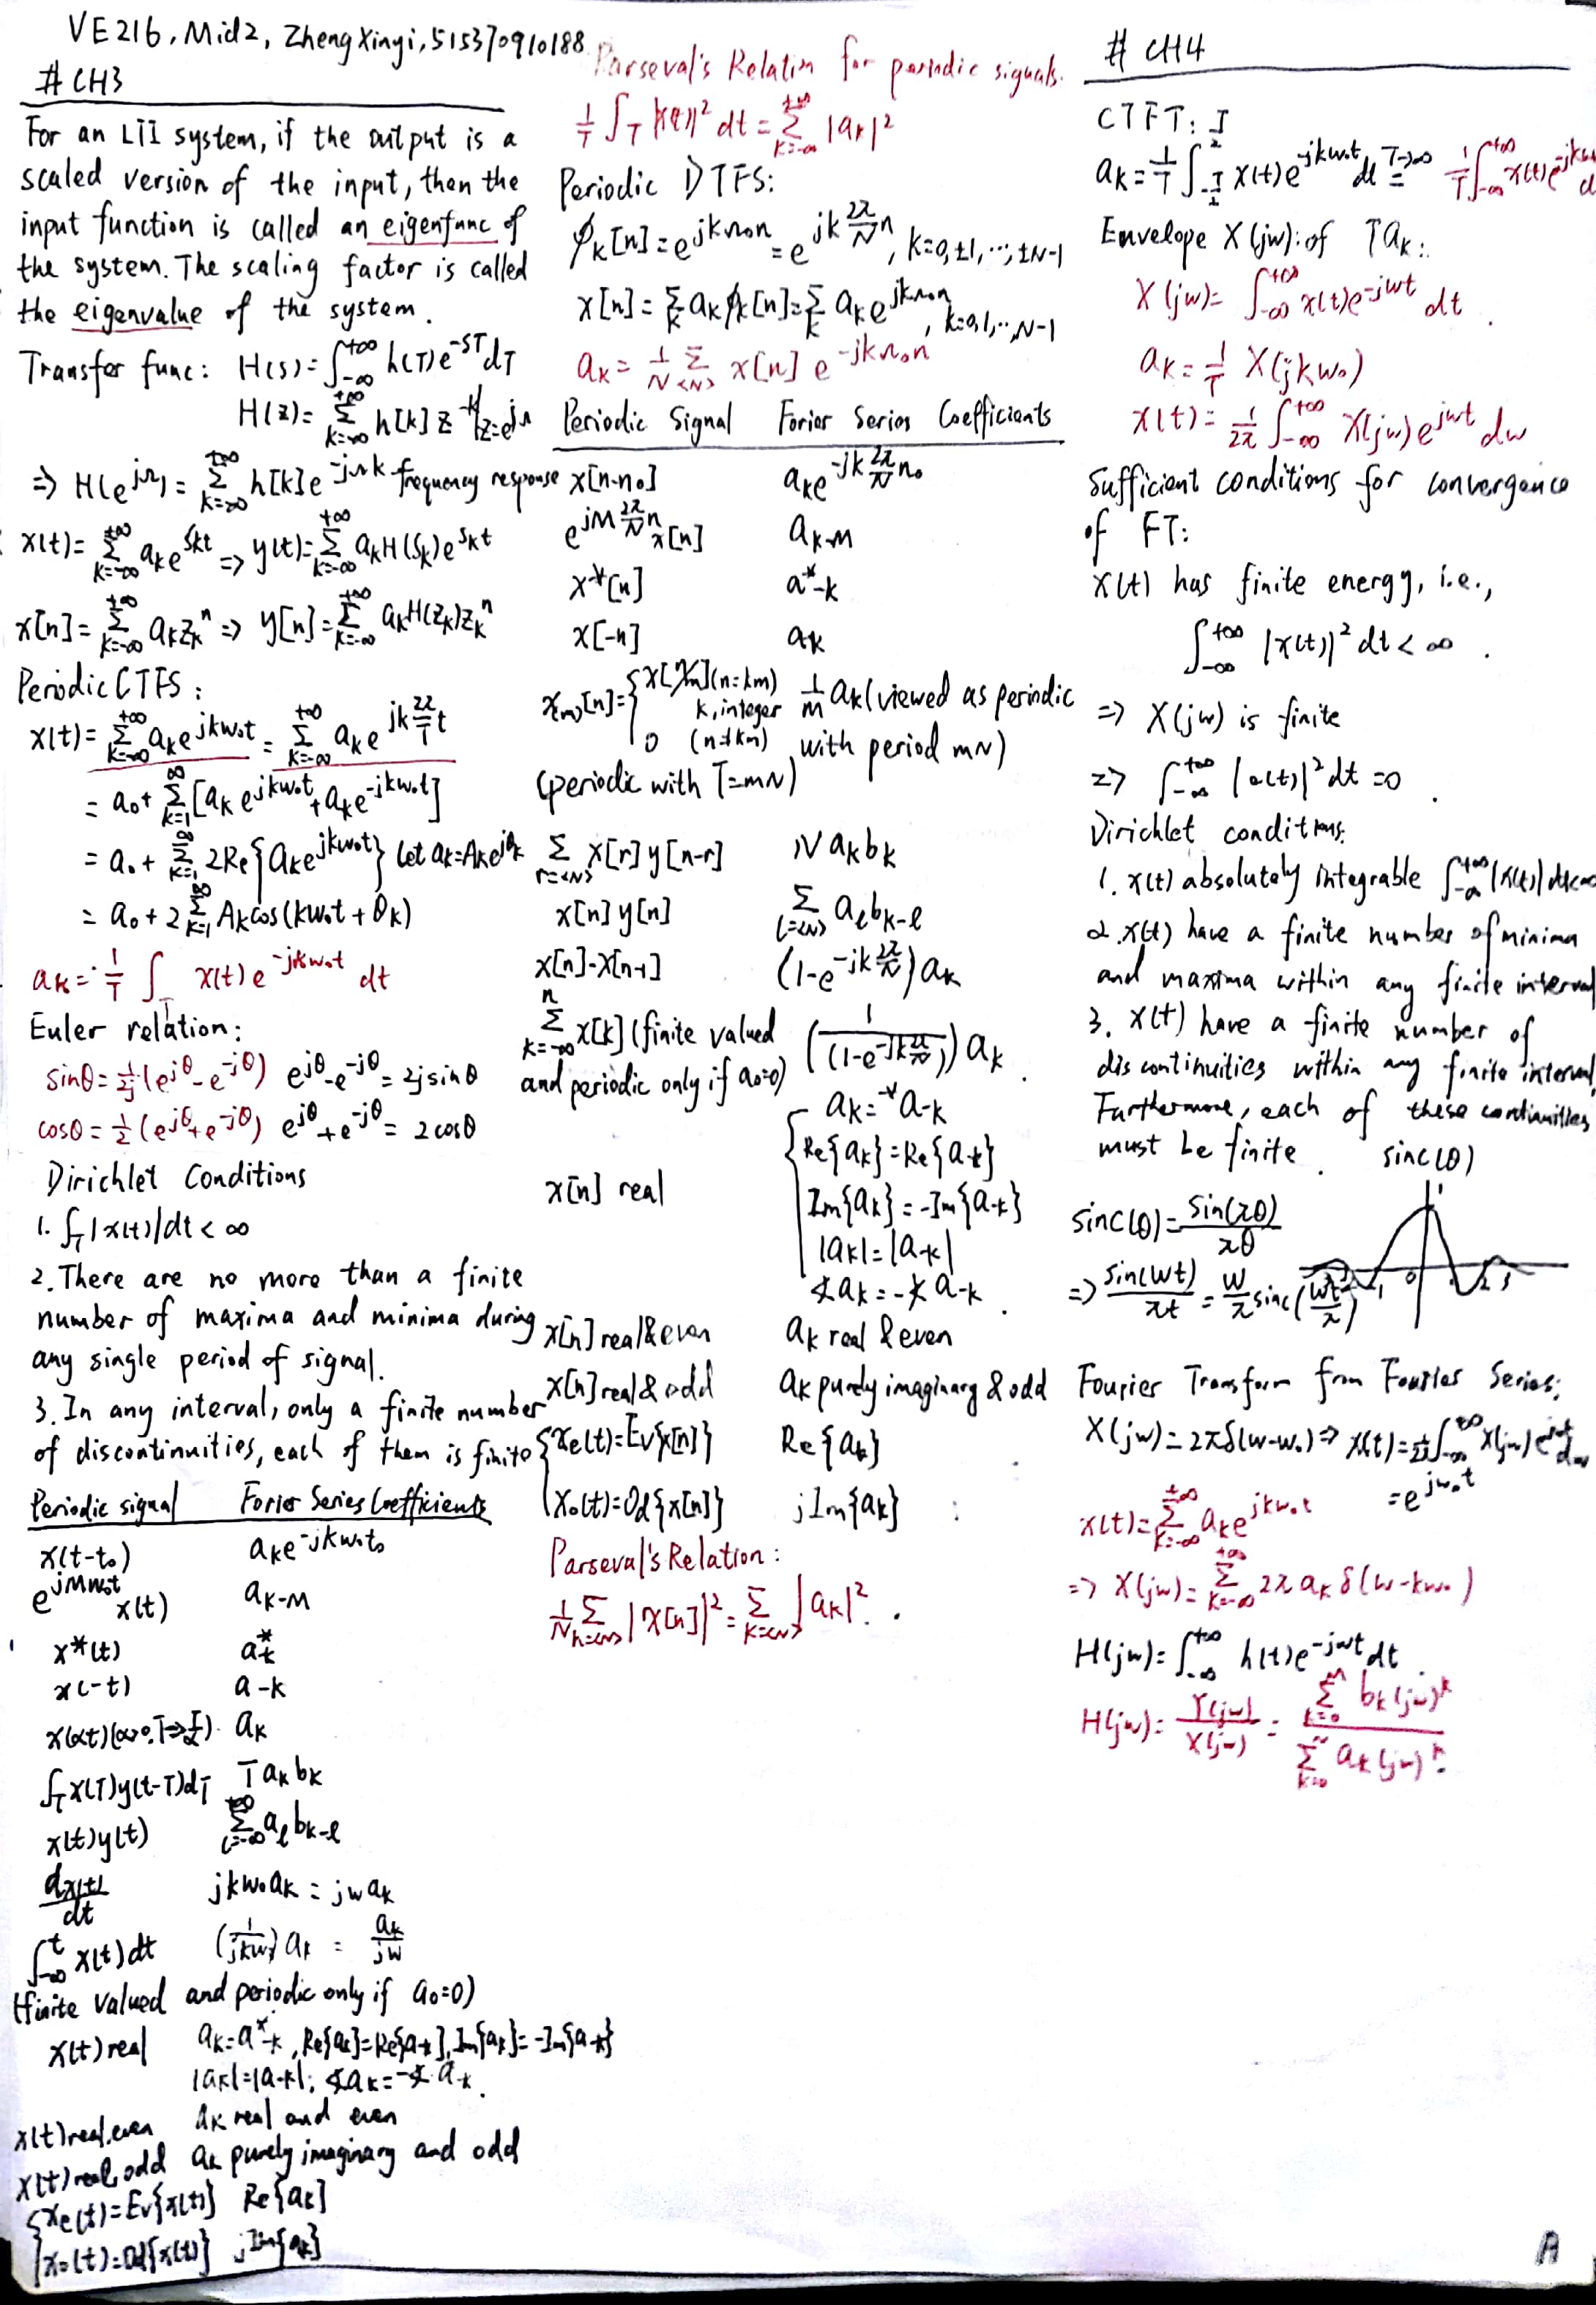 VE216, Mid2, Zheng Xinyi, 515370910188
# CH3
For an LTI system, if the output is a
scaled version of the input, then the
input function is called an eigenfunc of
the system. The scaling factor is called
the eigenvalue of the system.
Transfer func: H(s)=∫_{-∞}^{+∞} h(τ)e^{-sτ}dτ
H(z)=Σ_{k=-∞}^{+∞} h[k] z^{-k}|z=e^{jΩ}
=> H(e^{jΩ})=Σ_{k=-∞}^{+∞} h[k]e^{-jΩk} frequency response
x(t)=Σ_{k=-∞}^{+∞} a_k e^{s_k t} => y(t)=Σ_{k=-∞}^{+∞} a_k H(s_k)e^{s_k t}
x[n]=Σ_{k=-∞}^{+∞} a_k z_k^n => y[n]=Σ_{k=-∞}^{+∞} a_k H(z_k)z_k^n
Periodic CTFS:
x(t)=Σ_{k=-∞}^{+∞} a_k e^{jkw₀t}=Σ_{k=-∞}^{+∞} a_k e^{jk\frac{2π}{T}t}
= a₀+Σ_{k=1}^{∞}[a_k e^{jkw₀t}+a_k e^{-jkw₀t}]
= a₀+Σ_{k=1}^{∞} 2Re{a_k e^{jkw₀t}} let a_k=A_k e^{jθ_k}
= a₀+2Σ_{k=1}^{∞} A_k cos(kw₀t+θ_k)
a_k=\frac{1}{T}∫_T x(t)e^{-jkw₀t} dt
Euler relation:
sinθ=\frac{1}{2j}(e^{jθ}-e^{-jθ}) e^{jθ}-e^{-jθ}=2j sinθ
cosθ=\frac{1}{2}(e^{jθ}+e^{-jθ}) e^{jθ}+e^{-jθ}=2cosθ
Dirichlet Conditions
1. ∫_T |x(t)|dt<∞
2. There are no more than a finite
number of maxima and minima during
any single period of signal.
3. In any interval, only a finite number
of discontinuities, each of them is finite
Periodic signal Forier Series Coefficients
x(t-t₀) a_k e^{-jkw₀t₀}
e^{jMw₀t}x(t) a_{k-M}
x*(t) a*_{-k}
x(-t) a_{-k}
x(αt)(α>0,T=>\frac{T}{α}) a_k
∫_T x(τ)y(t-τ)dτ T a_k b_k
x(t)y(t) Σ_{l=-∞}^{+∞} a_l b_{k-l}
\frac{dx(t)}{dt} jkw₀a_k = jwa_k
∫_{-∞}^{t} x(t)dt (\frac{1}{jkw₀})a_k = \frac{a_k}{jw}
(finite valued and periodic only if a₀=0)
x(t) real a_k=a*_{-k}, Re{a_k}=Re{a_{-k}}, Im{a_k}=-Im{a_{-k}}
|a_k|=|a_{-k}|; ∢a_k=-∢a_{-k}.
x(t) real, even a_k real and even
x(t) real, odd a_k purely imaginary and odd
{x_e(t)=Ev{x(t)} Re{a_k}
x_o(t)=Od{x(t)} jIm{a_k}
Parseval's Relation for periodic signals.
\frac{1}{T}∫_T |x(t)|² dt=Σ_{k=-∞}^{+∞} |a_k|²
Periodic DTFS:
φ_k[n]=e^{jkΩ₀n}=e^{jk\frac{2π}{N}n}, k=0,±1,…,±N-1
x[n]=Σ_k a_kφ_k[n]=Σ_k a_k e^{jkΩ₀n}, k=0,1,…,N-1
a_k=\frac{1}{N}Σ_{<N>} x[n] e^{-jkΩ₀n}
Periodic Signal Forier Series Coefficients
x[n-n₀] a_k e^{-jk\frac{2π}{N}n₀}
e^{jM\frac{2π}{N}n}x[n] a_{k-M}
x*[n] a*_{-k}
x[-n] a_k
x_{(m)}[n]={x[n/m](n=km) \frac{1}{m}a_k(viewed as periodic
k,integer
0 (n≠km) with period mN)
(periodic with T=mN)
Σ_{r=<N>} x[r]y[n-r] N a_k b_k
x[n]y[n] Σ_{l=<N>} a_l b_{k-l}
x[n]-x[n-1] (1-e^{-jk\frac{2π}{N}})a_k
Σ_{k=-∞}^{n} x[k] (finite valued (\frac{1}{(1-e^{-jk\frac{2π}{N}})})a_k.
and periodic only if a₀=0)
x[n] real { a_k=*a_{-k}
Re{a_k}=Re{a_{-k}}
Im{a_k}=-Im{a_{-k}}
|a_k|=|a_{-k}|
∢a_k=-∢a_{-k}.
x[n] real&even a_k real &even
x[n] real&odd a_k purely imaginary &odd
{x_e(t)=Ev{x[n]} Re{a_k}
x_o(t)=Od{x[n]} jIm{a_k}
Parseval's Relation:
\frac{1}{N}Σ_{n=<N>} |x[n]|²=Σ_{k=<N>} |a_k|².
# CH4
CTFT:
a_k=\frac{1}{T}∫_{-\frac{T}{2}}^{\frac{T}{2}} x(t)e^{-jkw₀t}dt \overset{T→∞}{=} \frac{1}{T}∫_{-∞}^{+∞} x(t)e^{-jkw
Envelope X(jw): of Ta_k:
X(jw)=∫_{-∞}^{+∞} x(t)e^{-jwt} dt.
a_k=\frac{1}{T} X(jkw₀)
x(t)=\frac{1}{2π}∫_{-∞}^{+∞} X(jw)e^{jwt} dw
Sufficient conditions for convergence
of FT:
x(t) has finite energy, i.e.,
∫_{-∞}^{+∞} |x(t)|² dt<∞.
=> X(jw) is finite
=> ∫_{-∞}^{+∞} |e(t)|² dt=0.
Dirichlet conditions:
1. x(t) absolutely integrable ∫_{-∞}^{+∞} |x(t)| dt<∞
2. x(t) have a finite number of minima
and maxima within any finite interval
3. x(t) have a finite number of
discontinuities within any finite interval,
Furthermore, each of these continuities
must be finite.
sinc(θ)
1
-1 0 2 3
sinc(θ)=\frac{sin(πθ)}{πθ}
=> \frac{sin(Wt)}{πt}=\frac{W}{π}sinc(\frac{Wt}{π})
Fourier Transform from Fourier Series:
X(jw)=2πδ(w-w₀)=> x(t)=\frac{1}{2π}∫_{-∞}^{+∞} X(jw)e^{jwt}dw
=e^{jw₀t}
x(t)=Σ_{k=-∞}^{+∞} a_k e^{jkw₀t}
=> X(jw)=Σ_{k=-∞}^{+∞} 2πa_kδ(w-kw₀)
H(jw)=∫_{-∞}^{+∞} h(t)e^{-jwt}dt
H(jw)=\frac{Y(jw)}{X(jw)}=\frac{Σ_{k=0}^{M} b_k(jw)^k}{Σ_{k=0}^{N} a_k(jw)^k}.
A